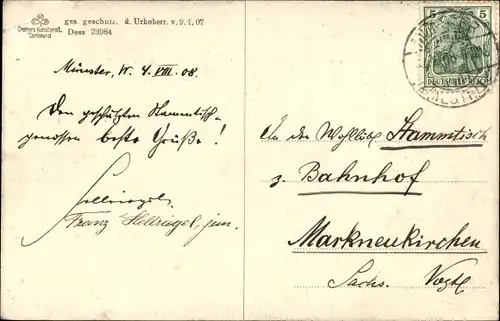 Cramers Kunstanst.
Dortmund
ges. geschutz. d. Urheberr. v. 9. 1. 07
Dess 23984
Münster, W. 4. VIII. 08.
Den geschätzten Stammtisch-
genossen beste Grüße!
Hellriegel,
Franz Hellriegel, jun.
5 5
DEUTSCHES REICH
An den Wohllöbl. Stammtisch
z. Bahnhof
Markneukirchen
Sachs. Vogtl.